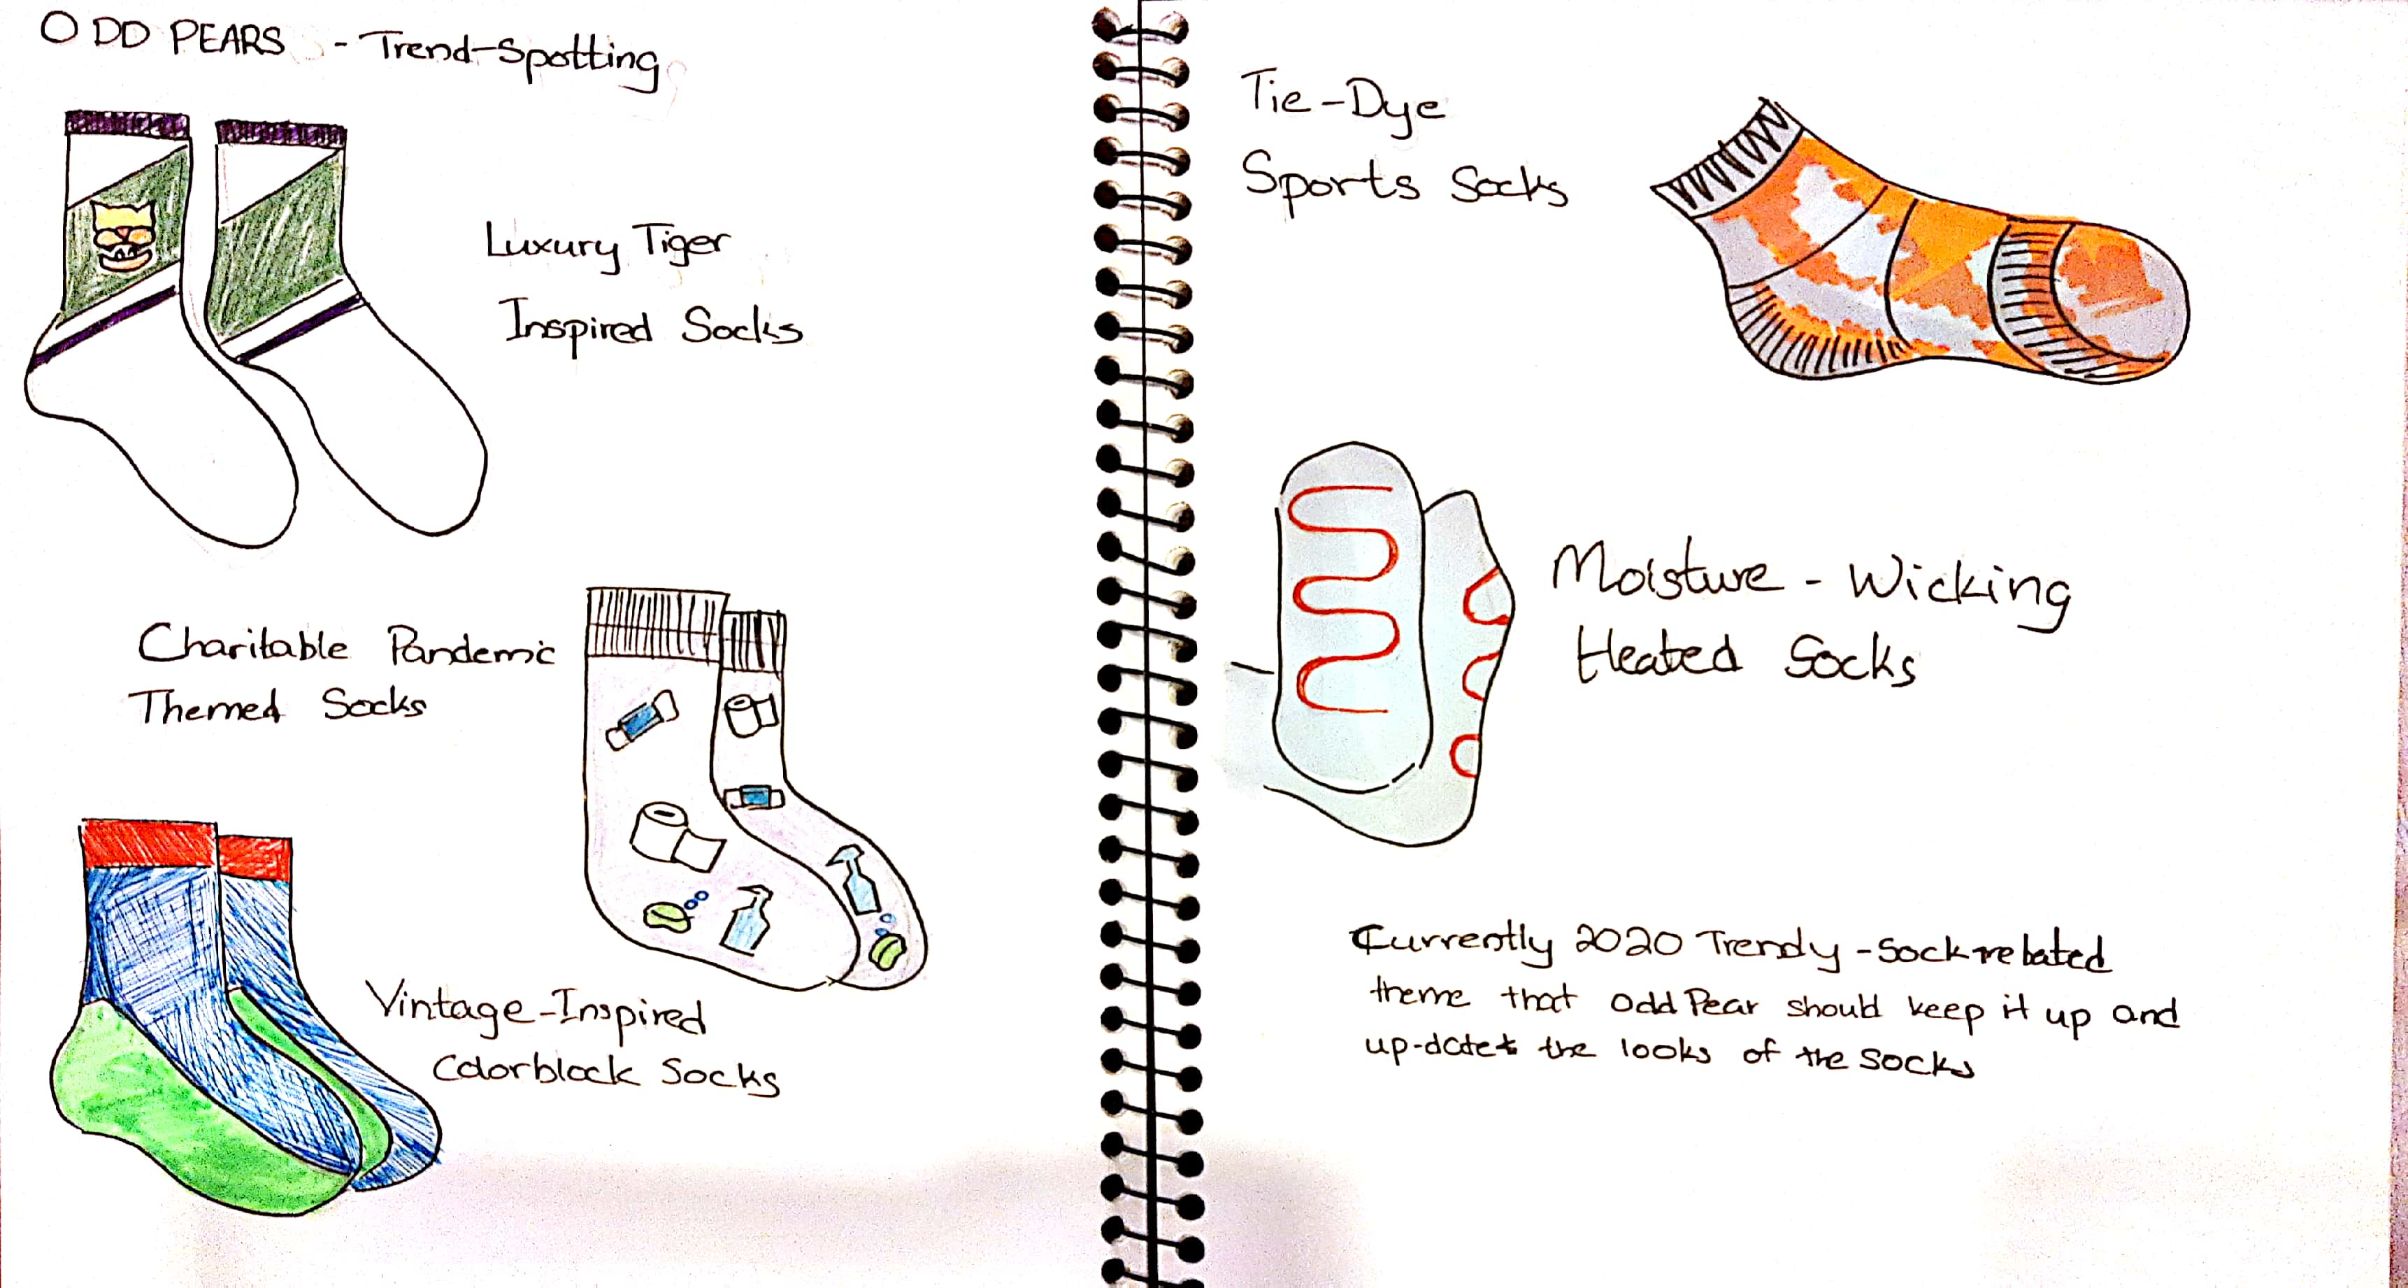 ODD PEARS - Trend-Spotting
Luxury Tiger
Inspired Socks
Charitable Pandemic
Themed Socks
Vintage-Inspired
Colorblock Socks
Tie-Dye
Sports Socks
Moisture-Wicking
Heated Socks
Currently 2020 Trendy-Sock related
theme that Odd Pear should keep it up and
up-date the looks of the socks